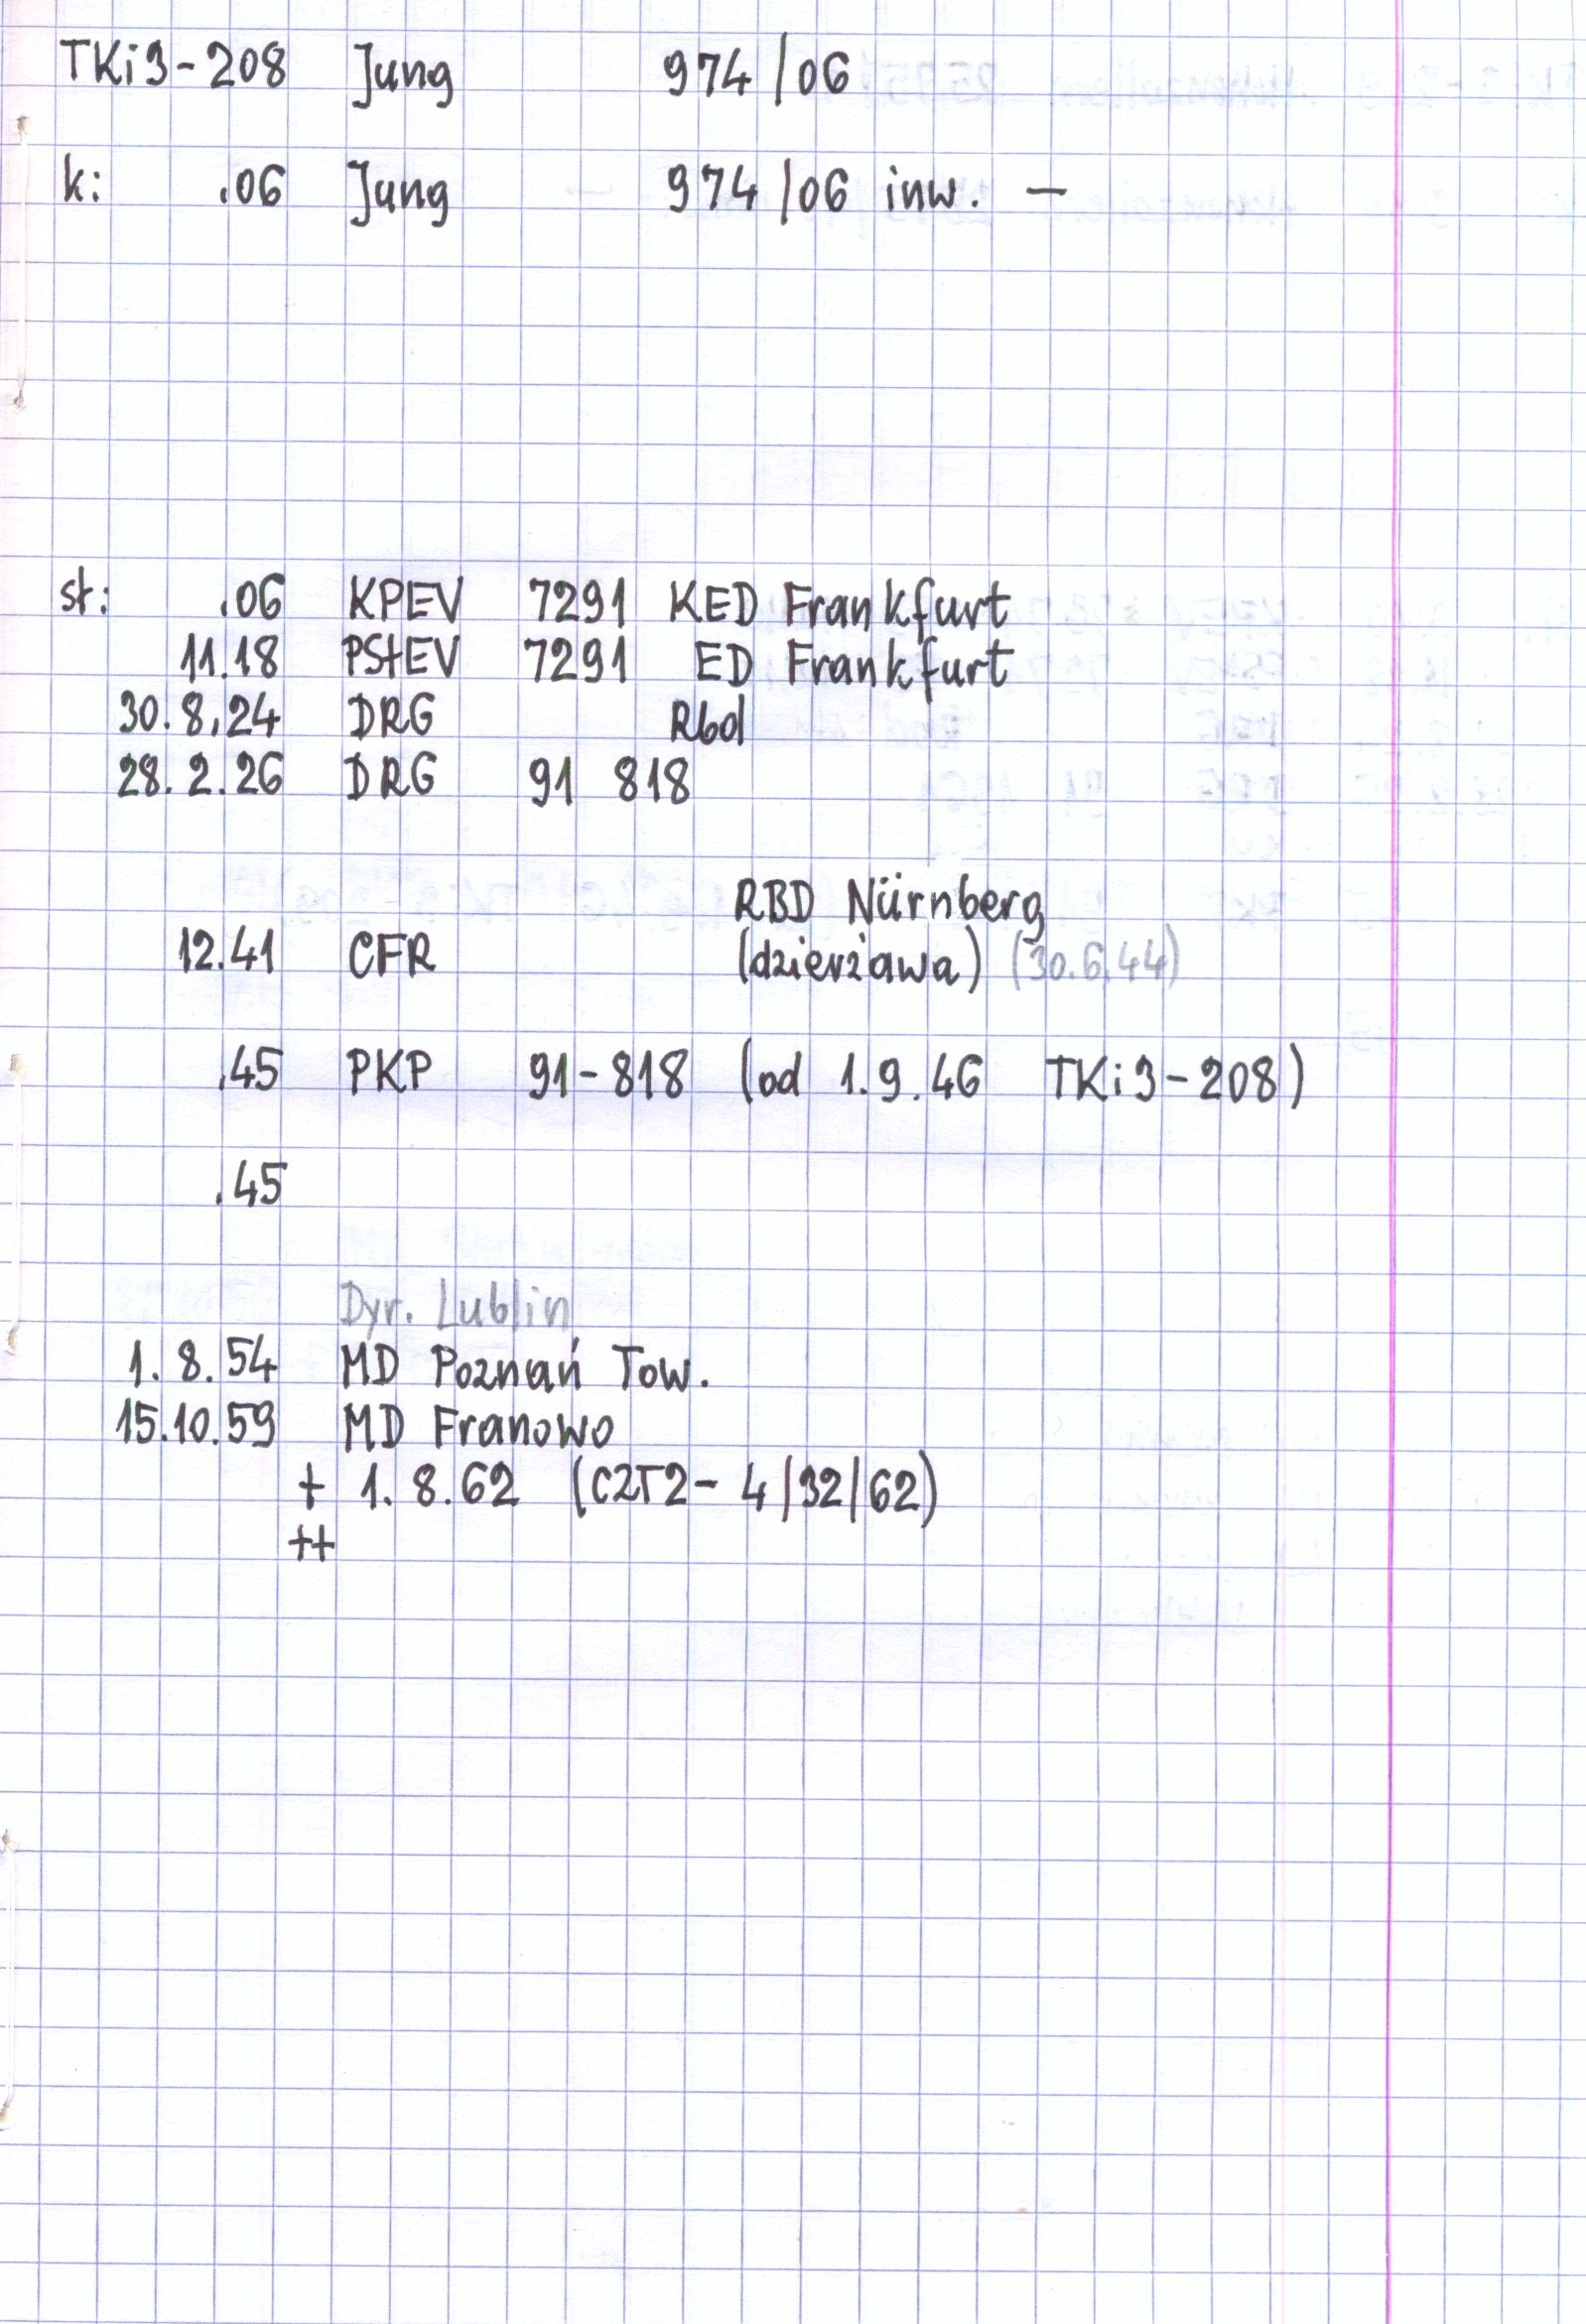 TKi3-208 Jung 974/06
k: .06 Jung 974/06 inw. —
st: .06 KPEV 7291 KED Frankfurt
11.18 PStEV 7291 ED Frankfurt
30.8.24 DRG Rbd
28.2.26 DRG 91 818
RBD Nürnberg
12.41 CFR (dzierżawa) (30.6.44)
.45 PKP 91-818 (od 1.9.46 TKi3-208)
.45
Dyr. Lublin
1.8.54 MD Poznań Tow.
15.10.59 MD Franowo
+ 1.8.62 (C2T2-4/32/62)
++